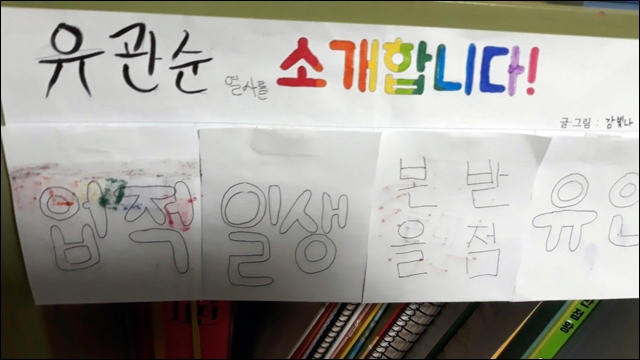 유관순 열사를 소개합니다!
글·그림 : 강빛나
업적
일생
본받
을점
유인